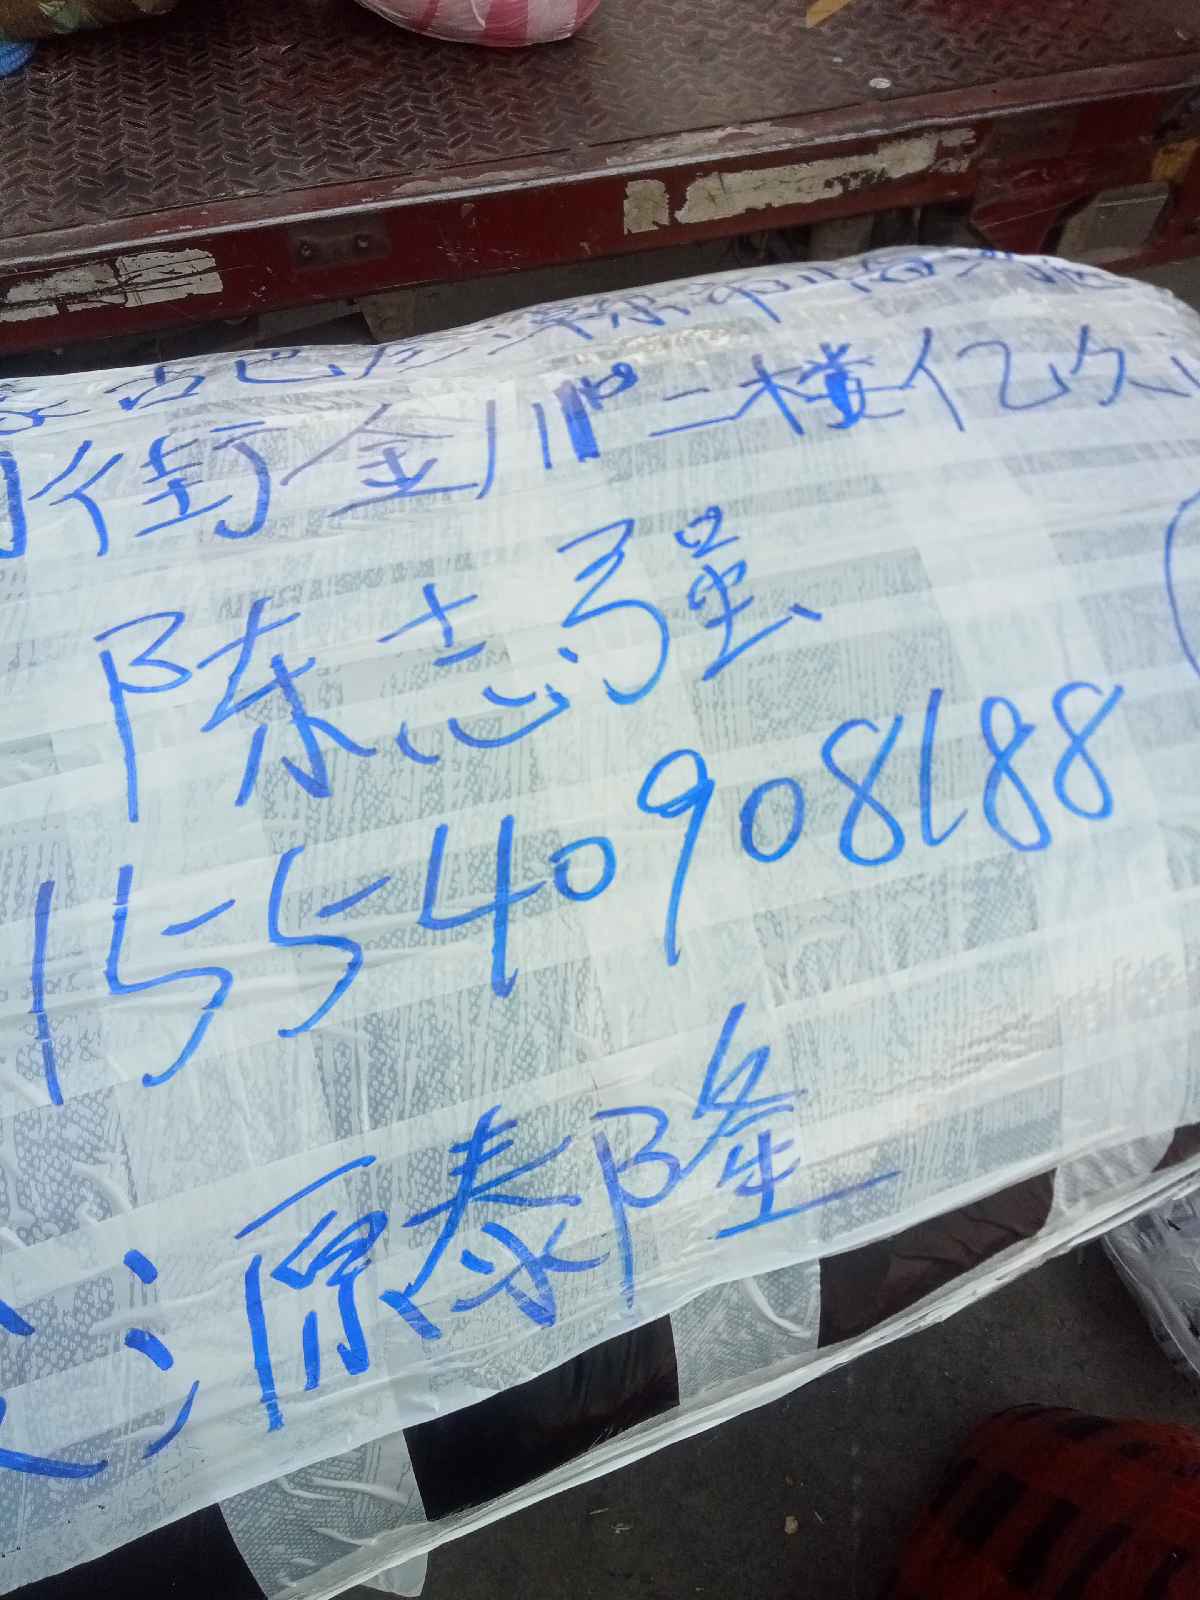 蒙古巴彦淖尔市临河
街金川二楼亿久
陈志强
15540908188
发:源泰隆